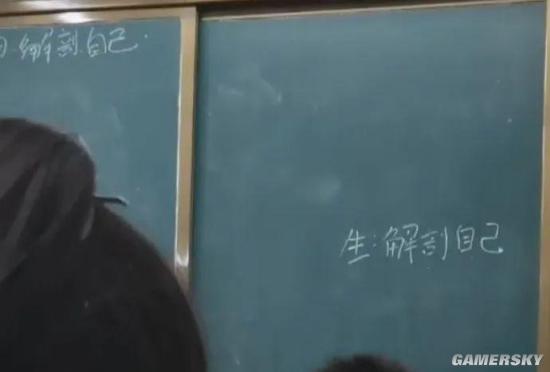 解剖自己.
生:解剖自己
GAMERSKY